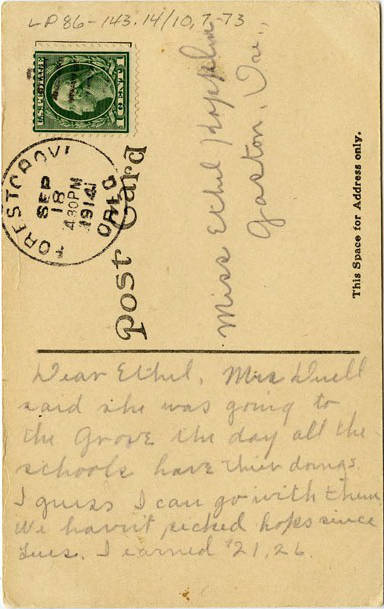 LP86-143.14/10,7,73
U.S. POSTAGE
1 CENT 1
FOREST GROVE
SEP
18
430PM
1914
OREG
Post Card
Miss Ethel
Gaston, Ore.,
This Space for Address only.
Dear Ethel, Mrs Duell
said she was going to
the Grove the day all the
schools have thier doings.
I guess I can go with them
We havn't picked hops since
Tues. I earned $21,26.